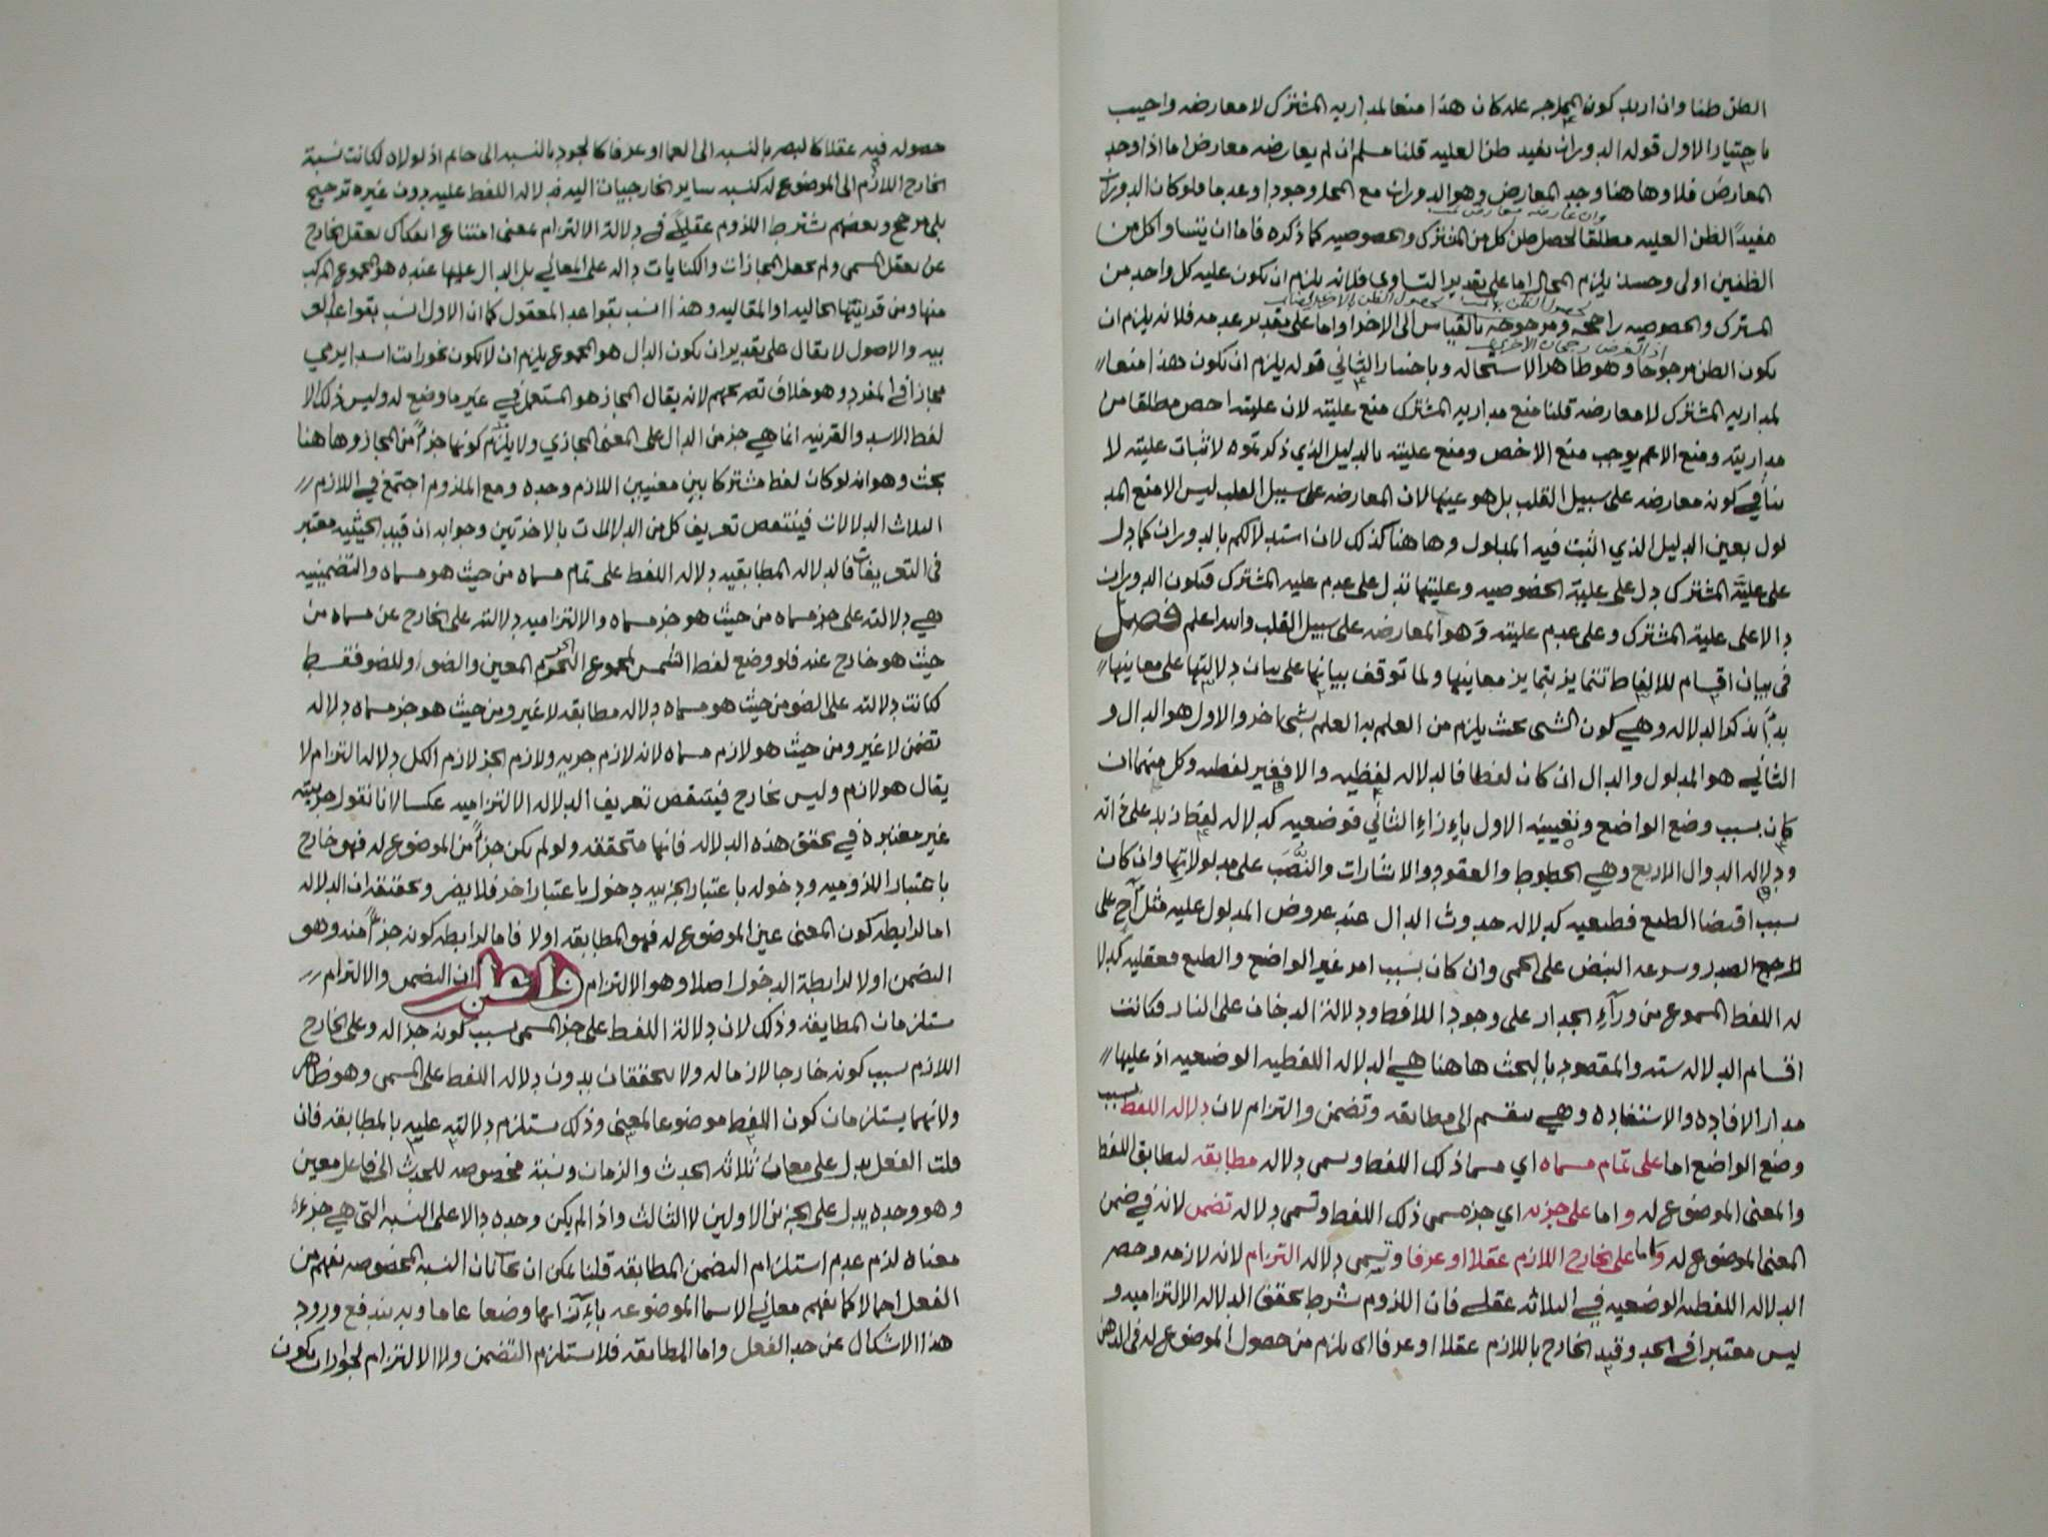 الظن ظنا وان اريد كون المدرجه عله كان هذا منعا لمداريه المشترك لا معارضه واجيب
باختيار الاول قوله الدوران يفيد ظن العليه قلنا مسلم ان لم يعارضه معارض اما اذا وجد
المعارض فلا وها هنا وجد المعارض وهو الدوران مع المحل وجودا وعدما فلو كان الدوران
مفيداً لظن العليه مطلقا لحصل ظن كل من المشترك والخصوصيه كما ذكره فاما ان يتساوا كل من
الظنين اولى وحينئذ يلزم المحال اما على تقدير التساوي فلانه يلزم ان يكون عليه كل واحد من
المشترك والخصوصيه راجحه ومرجوحه بالقياس الى الاخر واما على تقدير عدمه فلانه يلزم ان
يكون الظن مرجوحا وهو ظاهر الاستحاله وباختيار الثاني قوله يلزم ان يكون هذا منعا
لمداريه المشترك لا معارضه قلنا منع مداريه المشترك منع عليته لان عليته اخص مطلقا من
مداريته ومنع الاعم يوجب منع الاخص ومنع عليته بالدليل الذي ذكرتموه لاثبات عليته لا
ينافي كونه معارضه على سبيل القلب بل هو عينها لان المعارضه على سبيل القلب ليس الا منع المد
لول بعين الدليل الذي اثبت فيه المدلول وها هنا كذلك لان استدلالكم بالدوران كما دل
على عليّة المشترك دل على علية الخصوصيه وعليتها تدل على عدم علية المشترك فيكون الدوران
دالا على علية المشترك وعلى عدم عليته وهو المعارضه على سبيل القلب والله اعلم فصل
في بيان اقسام للالفاظ تتمايز بتمايز معانيها ولما توقف بيانها على بيان دلالتها على معانيها
بدأ بذكر الدلاله وهي كون الشي بحيث يلزم من العلم به العلم بشي اخر والاول هو الدال و
الثاني هو المدلول والدال ان كان لفظا فالدلاله لفظيه والا فغير لفظيه وكل منهما ان
كان بسبب وضع الواضع وتعيينه الاول بازاء الثاني فوضعيه كدلاله لفظ زيد على ذاته
ودلاله الدوال الاربع وهي الخطوط والعقود والاشارات والنُّصَب على مدلولاتها وان كان
بسبب اقتضا الطبع فطبعيه كدلاله حدوث الدال عند عروض المدلول عليه مثل اح على
الصدر وسرعه النبض على الحمى وان كان بسبب امر غير الواضع والطبع فعقليه كدلا
له اللفظ المسموع من ورآء الجدار على وجود اللافظ ودلالة الدخان على النار فكانت
اقسام الدلاله سته والمقصود بالبحث هاهنا هي الدلاله اللفظيه الوضعيه اذ عليها
مدار الافاده والاستفاده وهي تنقسم الى مطابقه وتضمن والتزام لان دلاله اللفظ بسبب
وضع الواضع اما على تمام مسماه اي مسما ذلك اللفظ وتسمى دلاله مطابقه لتطابق اللفظ
والمعنى الموضوع له واما على جزئه اي جزء مسمى ذلك اللفظ وتسمى دلاله تضمن لانه في ضمن
المعنى الموضوع له واما على الخارج اللازم عقلا او عرفا وتسمى دلاله التزام لانه لازمه وحصر
الدلاله اللفظيه الوضعيه في الثلاثه عقلي فان اللزوم شرط تحقق الدلاله الالتزاميه و
ليس معتبرا في الحد وقيد الخارج باللازم عقلا او عرفا اي يلزم من حصول الموضوع له في الذهن
حصوله فيه عقلا كالبصر بالنسبه الى العما او عرفا كالجود بالنسبه الى حاتم اذ لولاه لكانت نسبة
الخارج اللازم الى الموضوع له كنسبه ساير الخارجيات اليه فدلاله اللفظ عليه دون غيره ترجيح
بلا مرجح وبعضهم شترط اللزوم عقلياً في دلالة الالتزام بمعنى امتناع انفكاك تعقل الخارج
عن تعقل المسمى ولم يجعل المجازات والكنايات داله على المعاني بل الدال عليها عنده هو المجموع المركب
منها ومن قرينتها الحاليه او المقاليه وهذا انسب بقواعد المعقول كما ان الاول انسب بقواعد العر
بيه والاصول لا يقال على تقدير ان يكون الدال هو المجموع يلزم ان لا يكون نحو رايت اسدا يرمي
مجازا في المفرد وهو خلاف تصريحهم لانه يقال المجاز هو المستعمل في غير ما وضع له وليس ذلك الا
لفظ الاسد والقرينه انما هي جزء من الدال على المعنى المجازي ولا يلزم كونها جزءً من المجاز وها هنا
بحث وهو انه لو كان لفظ مشتركا بين معنيين اللازم وحده ومع الملزوم اجتمع في اللازم
الثلاث الدلالات فينتقض تعريف كل من الدلالات بالاخرتين وجوابه ان قيد الحيثيه معتبر
في التعريفات فالدلاله المطابقيه دلاله اللفظ على تمام مسماه من حيث هو مسماه والتضمينيه
هي دلالته على جزء مسماه من حيث هو جزء مسماه والالتزاميه دلالته على الخارج عن مسماه من
حيث هو خارج عنه فلو وضع لفظ الشمس لمجموع الجرم المعين والضوء وللضو فقط
كانت دلالته على الضو من حيث هو مسماه دلاله مطابقه لا غير ومن حيث هو جزء مسماه دلاله
تضمن لا غير ومن حيث هو لازم مسماه لانه لازم جزيه ولازم الجزء لازم الكل دلاله التزام لا
يقال هو لازم وليس بخارج فينتقض تعريف الدلاله الالتزاميه عكسا لانا نقول جزييته
غير معتبره في تحقق هذه الدلاله فانها متحققه ولو لم يكن جزءً من الموضوع له فهو خارج
باعتبار اللزوميه ودخوله باعتبار الجزييه دخول باعتبار اخر فلا يضر وتحقيقه ان الدلاله
اما لرابطه كون المعنى عين الموضوع له فهو المطابقه او لا فاما لرابطه كونه جزءً منه وهو
التضمن او لا لرابطة الدخول اصلا وهو الالتزام واعلم ان التضمن والالتزام
يستلزمان المطابقه وذلك لان دلالة اللفظ على جزء المسمى بسبب كونه جزءا له وعلى الخارج
اللازم بسبب كونه خارجا لازما له ولا يتحققان بدون دلاله اللفظ على المسمى وهو ظاهر
ولانهما يستلزمان كون اللفظ موضوعا لمعنى وذلك يستلزم دلالته عليه بالمطابقه فان
قلت الفعل يدل على معان ثلاثه الحدث والزمان ونسبة مخصوصه للحدث الى فاعل معين
وهو وحده يدل على الجزئين الاولين لا الثالث واذا لم يكن وحده دالا على النسبه التي هي جزء
معناه لزم عدم استلزام التضمن المطابقه قلنا يمكن ان النسبه المخصوصه تفهم من
الفعل اجمالا كما تفهم معاني الاسما الموضوعه بازآئها وضعا عاما وبه يندفع ورود
هذا الاشكال عن حد الفعل واما المطابقه فلا تستلزم التضمن ولا الالتزام لجواز ان يكون